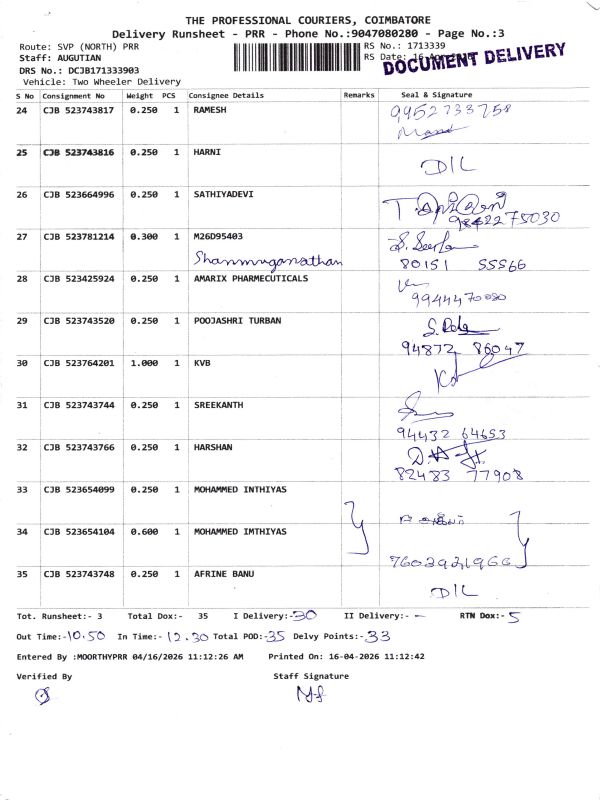 THE PROFESSIONAL COURIERS, COIMBATORE
Delivery Runsheet - PRR - Phone No.:9047080280 - Page No.:3
Route: SVP (NORTH) PRR
Staff: AUGUTIAN
DRS No.: DCJB171333903
Vehicle: Two Wheeler Delivery
RS No.: 1713339
RS Date: 16
DOCUMENT DELIVERY
S No Consignment No Weight PCS Consignee Details Remarks Seal & Signature
24 CJB 523743817 0.250 1 RAMESH 9952733758
25 CJB 523743816 0.250 1 HARNI DIL
26 CJB 523664996 0.250 1 SATHIYADEVI
75030
27 CJB 523781214 0.300 1 M26D95403
Shanmuganathan 80151 55566
28 CJB 523425924 0.250 1 AMARIX PHARMECUTICALS
29 CJB 523743520 0.250 1 POOJASHRI TURBAN
94872 86047
30 CJB 523764201 1.000 1 KVB
31 CJB 523743744 0.250 1 SREEKANTH
94432 64653
32 CJB 523743766 0.250 1 HARSHAN
82483 77908
33 CJB 523654099 0.250 1 MOHAMMED INTHIYAS
34 CJB 523654104 0.600 1 MOHAMMED IMTHIYAS
35 CJB 523743748 0.250 1 AFRINE BANU DIL
Tot. Runsheet:- 3 Total Dox:- 35 I Delivery:-30 II Delivery:- - RTN Dox:- 5
Out Time:-10.50 In Time:- 12.30 Total POD:-35 Delvy Points:-33
Entered By :MOORTHYPRR 04/16/2026 11:12:26 AM Printed On: 16-04-2026 11:12:42
Verified By Staff Signature